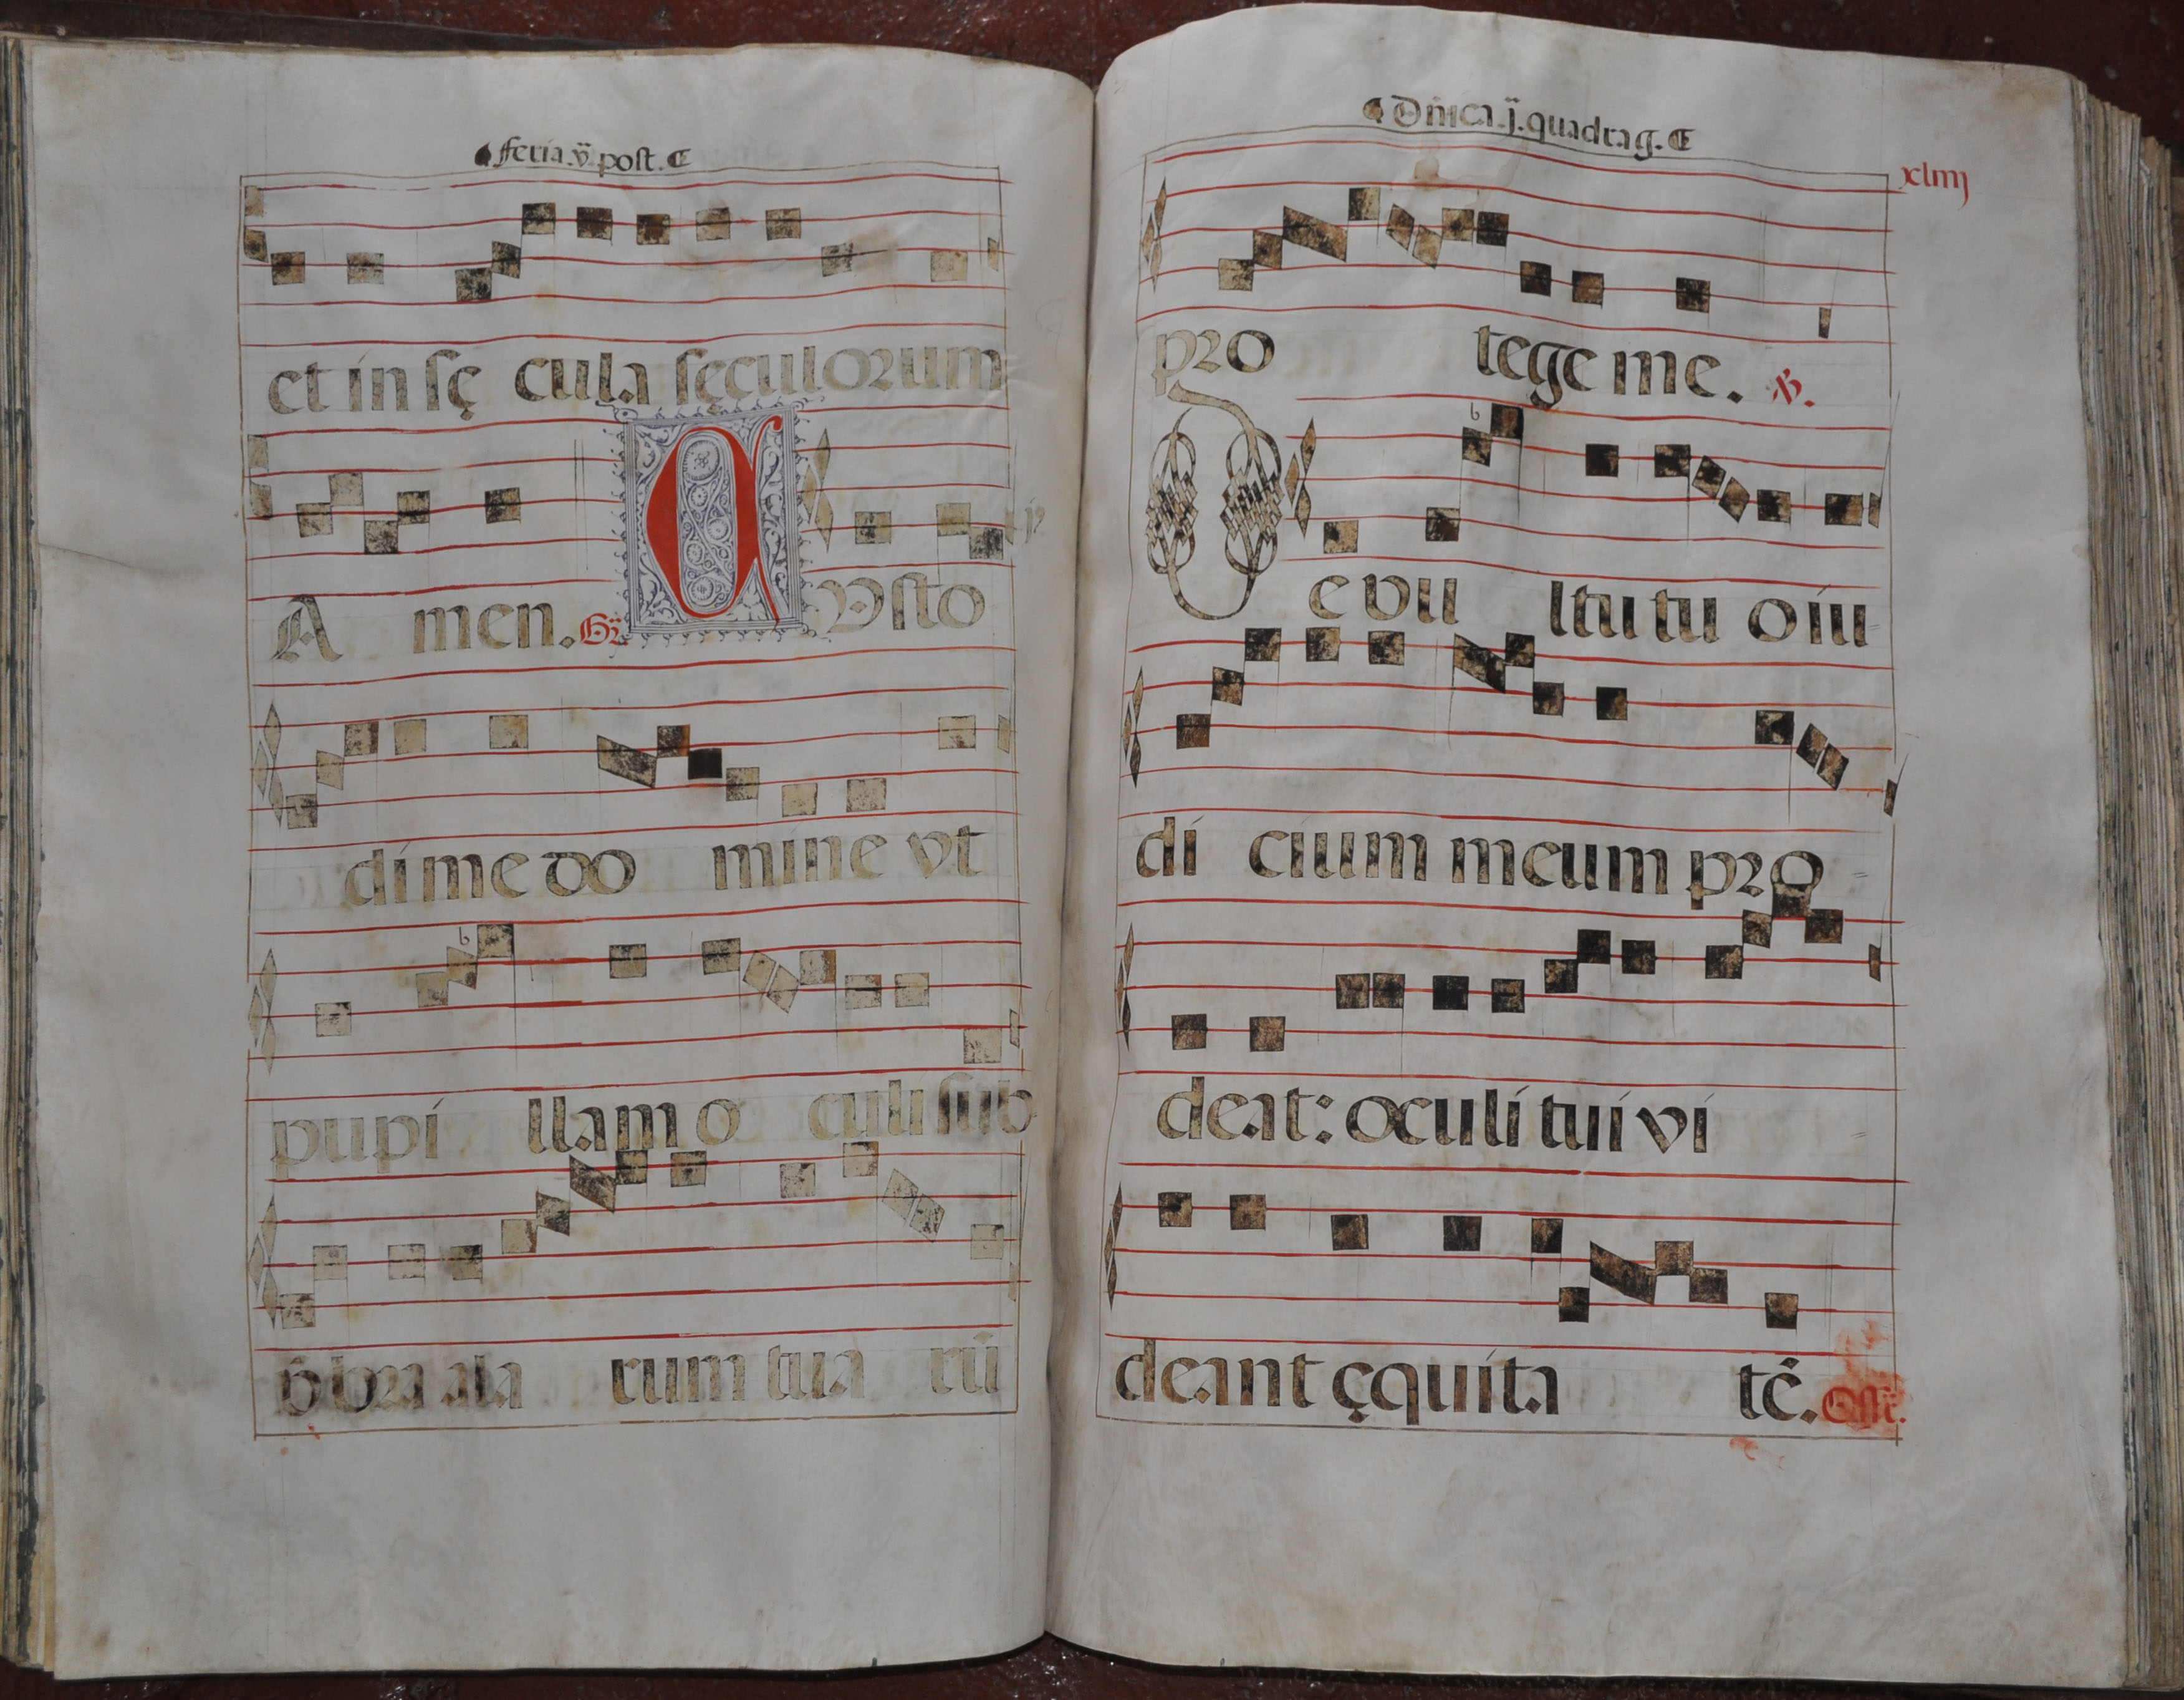 feria.v̈ post.
et in sę cula sęculorum
A men. Gr̈. Custo
di me do mine vt
pupi llam o culi sub
vmbra ala rum tua rū
Dn̄ica.j̈.quadrag.
xliiij
pro tege me. ℣.
De vu ltu tu o iu
di cium meum pro
deat: oculi tui vi
deant ęquita tē. Off̄r.